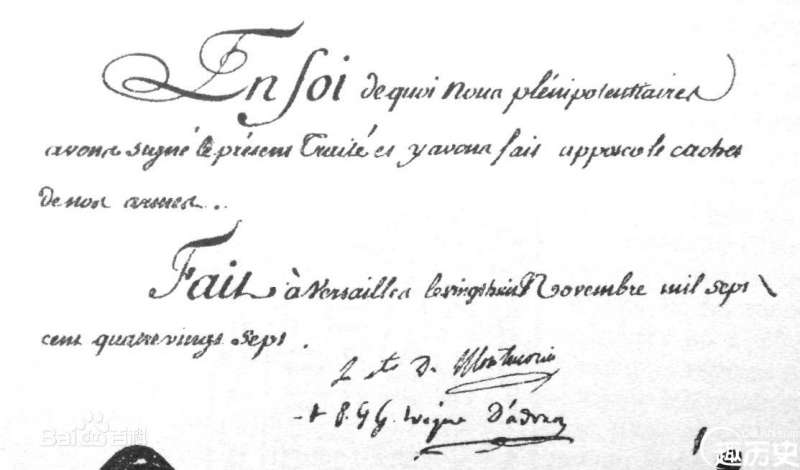 En foi de quoi Nous plénipotentiaires
avons signé le présent Traité et y avons fait apposer le cachet
de nos armes.
Fait à Versailles le vingt huit Novembre mil sept
cent quatre vingt sept.
L cte De Montmorin
+ P. J. G. évêque D'adran
Baidu百科
趣历史